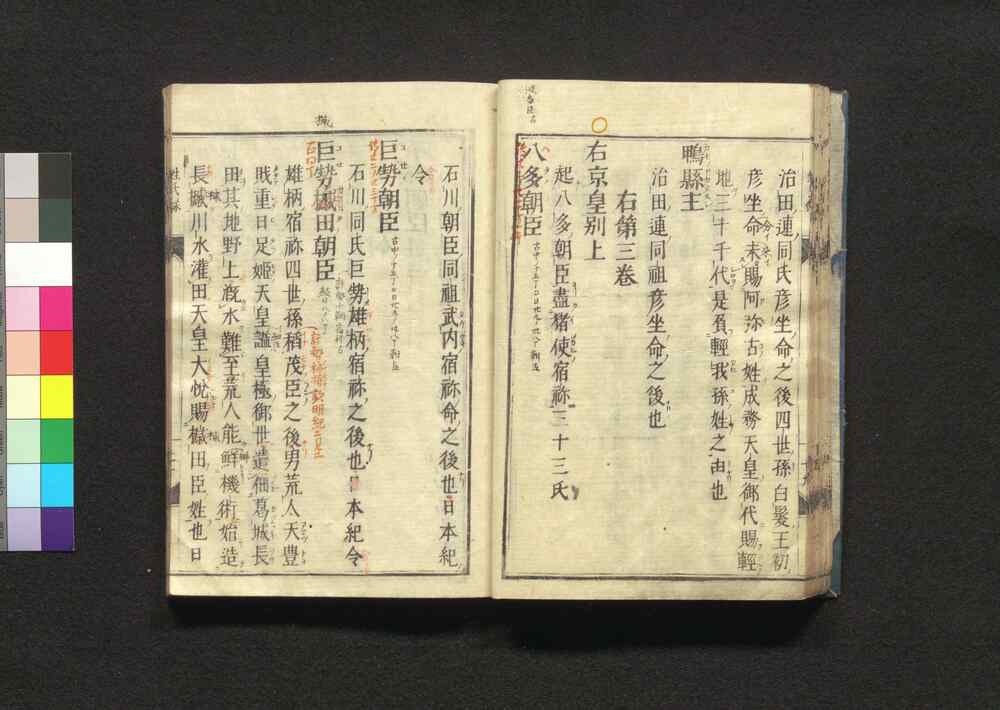 治田連同氏彦坐命之後四世孫白髪王初
彦坐命来賜阿弥古姓成務天皇御代賜輕
地三十千代是負輕我孫姓之由也
鴨縣主
治田連同祖彦坐命之後也
右第三巻
右京皇别上
起八多朝臣盡猪使宿祢三十三氏
八多朝臣
石川朝臣同祖武内宿祢命之後也日本紀
令
巨勢朝臣
石川同氏巨勢雄柄宿祢之後也日本紀令
巨勢槭田朝臣
雄柄宿祢四世孫稻茂臣之後男荒人天豊
財重日足姫天皇謚皇極御世遣佃葛城長
田其地野上漑水難至荒人能鮮機術始造
長槭川水灌田天皇大悦賜槭田臣姓也日
姓氏録